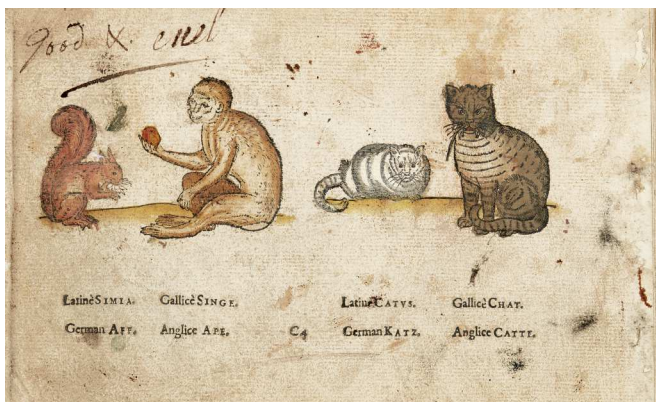 Good & evel
Latinè SIMIA. Gallicè SINGE.
German AFF. Anglice APE. C4
Latinè CATVS. Gallicè CHAT.
German KATZ. Anglice CATTE.